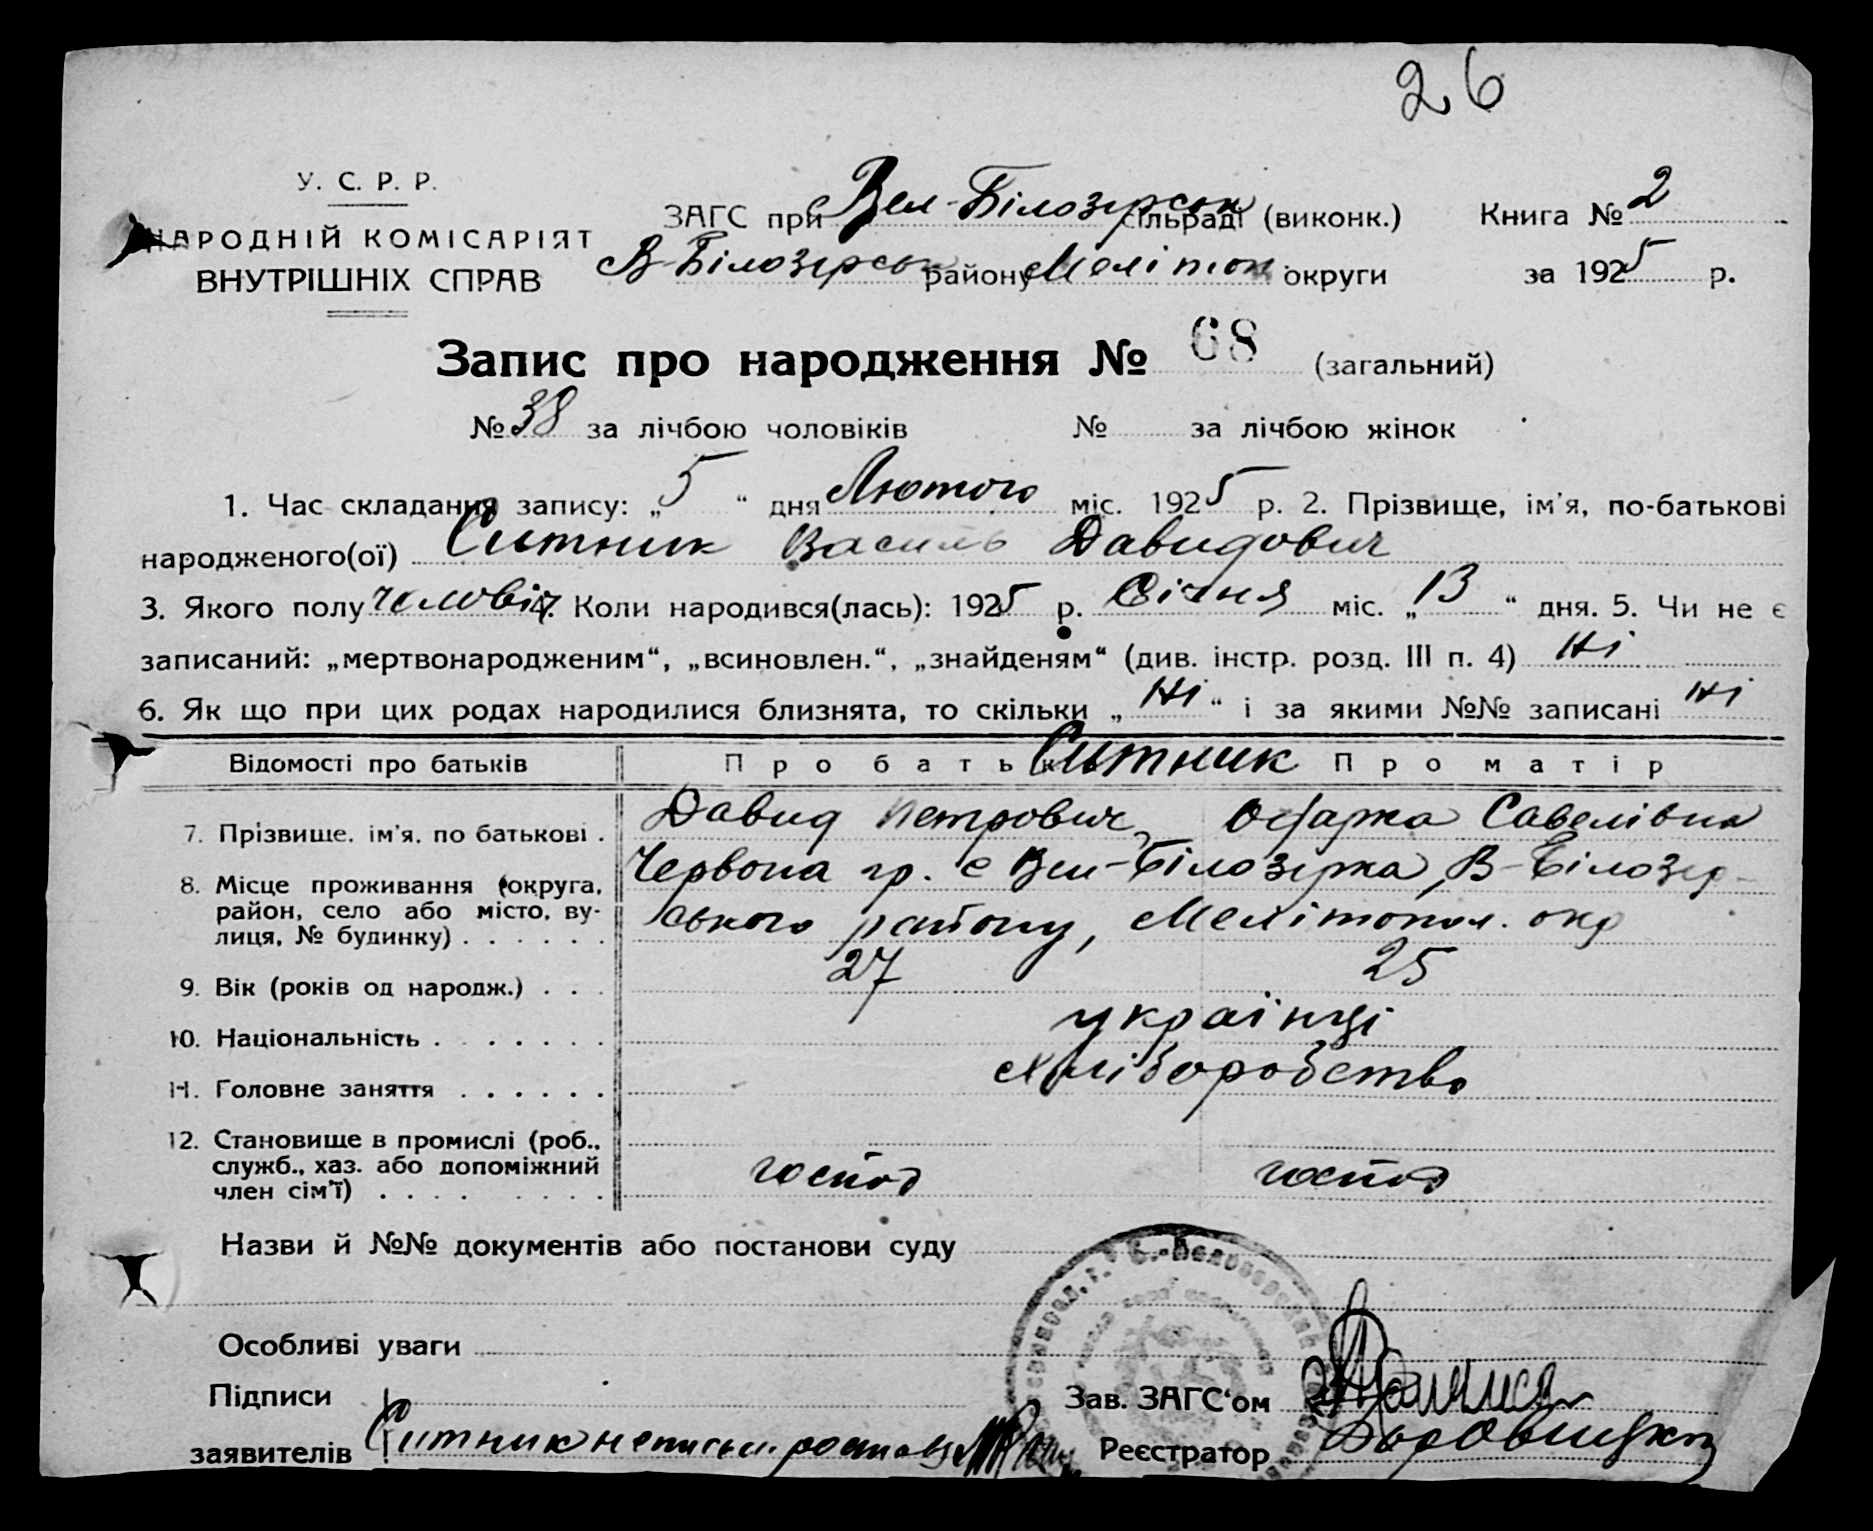 26
У. С. Р. Р.
НАРОДНІЙ КОМІСАРІЯТ
ВНУТРІШНІХ СПРАВ
ЗАГС при Вел-Білозерськ сільраді (виконк.) Книга № 2
В-Білозерськ району Мелітоп. округи за 1925 р.
Запис про народження № 68 (загальний)
№ 38 за лічбою чоловіків № за лічбою жінок
1. Час складання запису: „5“ дня Лютого міс. 1925 р. 2. Прізвище, ім'я, по-батькові
народженого(ої) Ситник Василь Давидович
3. Якого полу чоловіч 4. Коли народився(лась): 1925 р. Січня міс. „13“ дня. 5. Чи не є
записаний: „мертвонародженим“, „всиновлен.“, „знайденям“ (див. інстр. розд. III п. 4) Ні
6. Як що при цих родах народилися близнята, то скільки „Ні“ і за якими №№ записані Ні
Відомості про батьків Про батька Ситник Про матір
7. Прізвище, ім'я, по батькові . Давид Петрович, Офарка Савелівна
8. Місце проживання (округа, район, село або місто, вулиця, № будинку) . . . . . . Червона гр. с Вел-Білозерка, В-Білозер-
ського району, Мелітопол. окр
9. Вік (років од народж.) . . . 27 25
10. Національність . . . . . . . українці
11. Головне заняття . . . . . . хліборобство
12. Становище в промислі (роб., служб., хаз. або допоміжний член сім'ї) . . . . . . . . господ господ
Назви й №№ документів або постанови суду
Особливі уваги
Підписи
заявителів Ситник неписьм.
Зав. ЗАГС'ом
Реєстратор